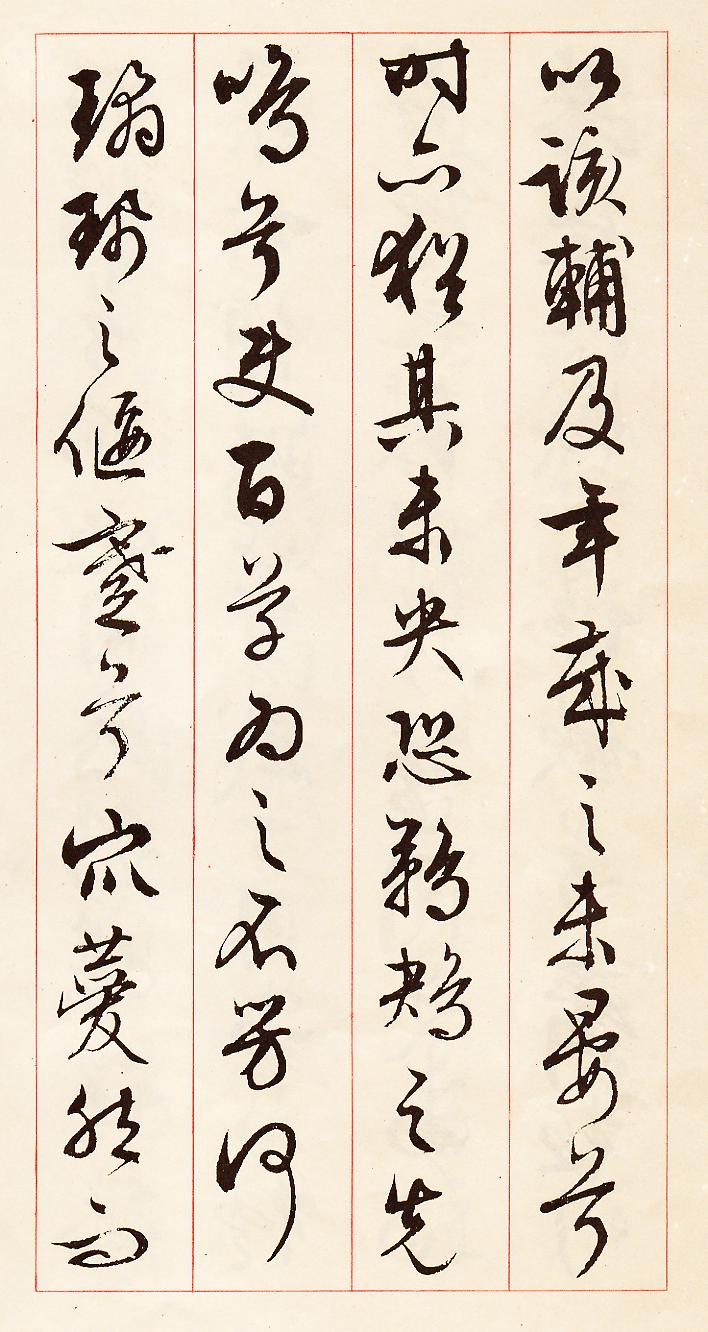 以該輔及年歲之未晏兮
時亦猶其未央恐鵜鴂之先
鳴兮使百草為之不芳何
瓊珮之偃蹇兮衆薆然而